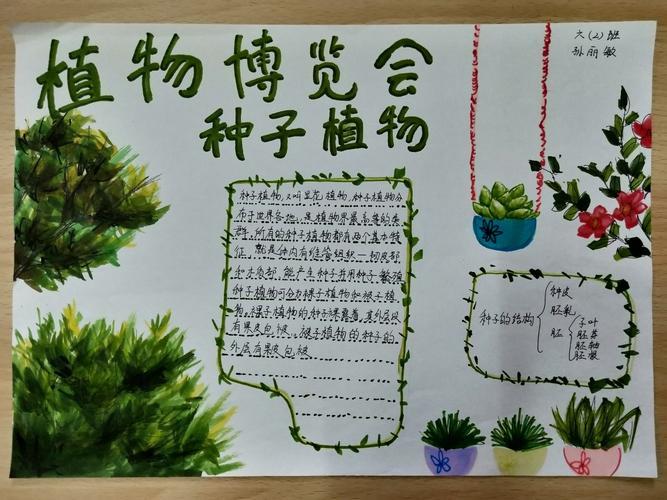 植物博览会
种子植物
六(2)班
孙丽敏
种子植物,又叫显花植物,种子植物分
布于世界各地,是植物界最高等的类
群,所有的种子植物都有两个基本特
征,就是体内有维管组织一韧皮部
和木质部,能产生种子并用种子繁殖
种子植物可分为裸子植物和被子植
物,裸子植物的种子裸露着,其外层没
有果皮包被,被子植物的种子的
外层有果皮包被
种子的结构
种皮
胚乳
胚
子叶
胚芽
胚轴
胚根